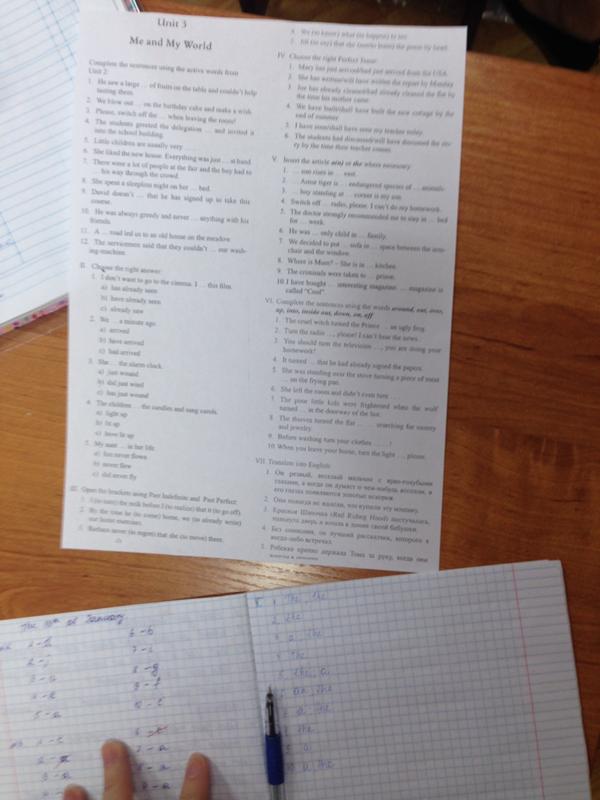 Unit 3
Me and My World
Complete the sentences using the active words from
Unit 2:
1. He saw a large ... of fruits on the table and couldn't help
tasting them.
2. We blow out ... on the birthday cake and make a wish.
3. Please, switch off the ... when leaving the room!
4. The students greeted the delegation ... and invited it
into the school building.
5. Little children are usually very ... .
6. She liked the new house. Everything was just ... at hand.
7. There were a lot of people at the fair and the boy had to
... his way through the crowd.
8. She spent a sleepless night on her ... bed.
9. David doesn't ... that he has signed up to take this
course.
10. He was always greedy and never ... anything with his
friends.
11. A ... road led us to an old house on the meadow.
12. The servicemen said that they couldn't ... our wash-
ing-machine.
II. Choose the right answer:
1. I don't want to go to the cinema. I ... this film.
a) has already seen
b) have already seen
c) already saw
2. We ... a minute ago.
a) arrived
b) have arrived
c) had arrived
3. She ... the alarm clock.
a) just wound
b) did just wind
c) has just wound
4. The children ... the candles and sang carols.
a) light up
b) lit up
c) have lit up
5. My aunt ... in her life.
a) has never flown
b) never flew
c) did never fly
III. Open the brackets using Past Indefinite and Past Perfect:
1. I (to turn) the milk before I (to realize) that it (to go off).
2. By the time he (to come) home, we (to already write)
our home exercises.
3. Barbara never (to regret) that she (to move) there.
6. We (to know) what (to happen) to her.
IV. Choose the right Perfect Tense:
1. Mary has just arrived/had just arrived from the USA.
2. She has written/will have written the report by Monday.
3. Joe has already cleaned/had already cleaned the flat by
the time his mother came.
4. We have built/shall have built the new cottage by the
end of summer.
5. I have seen/shall have seen my teacher today.
6. The students had discussed/will have discussed the sto-
ry by the time their teacher comes.
V. Insert the article a(n) or the where necessary:
1. ... sun rises in ... east.
2. ... Amur tiger is ... endangered species of ... animals.
3. ... boy standing at ... corner is my son.
4. Switch off ... radio, please. I can't do my homework.
5. The doctor strongly recommended me to stay in ... bed
for ... week.
6. He was ... only child in ... family.
7. We decided to put ... sofa in ... space between the arm-
chair and the window.
8. Where is Mum? – She is in ... kitchen.
9. The criminals were taken to ... prison.
10. I have bought ... interesting magazine. ... magazine is
called "Cool".
VI. Complete the sentences using the words around, out, over,
up, into, inside out, down, on, off
1. The cruel witch turned the Prince ... an ugly frog.
2. Turn the radio ..., please! I can't hear the news.
3. You should turn the television ..., you are doing your
homework!
4. It turned ... that he had already signed the papers.
5. She was standing over the stove turning a piece of meat
... on the frying pan.
6. She left the room and didn't even turn ... .
7. The poor little kids were frightened when the wolf
turned ... in the doorway of the hut.
8. The thieves turned the flat ... ... searching for money
and jewelry.
9. Before washing turn your clothes ... ... !
10. When you leave your home, turn the light ... please.
VII. Translate into English:
1. Он резвый, веселый мальчик с ярко-голубыми
глазами, а когда он думает о чем-нибудь веселом, в
его глазах появляются золотые искорки.
2. Они никогда не жалели, что купили эту машину.
3. Красная Шапочка (Red Riding Hood) постучалась,
толкнула дверь и вошла в домик своей бабушки.
4. Без сомнения, он лучший рассказчик, которого я
когда-либо встречал.
5. Ребекка крепко держала Тома за руку, когда они
The 10th of January
5 - a
6 - b
7 - i
8 - g
9 - f
V. 1 The, the
2 the
3 a the
4 the
5 the, a
6 an, the
a, the
the
a
10 a, the